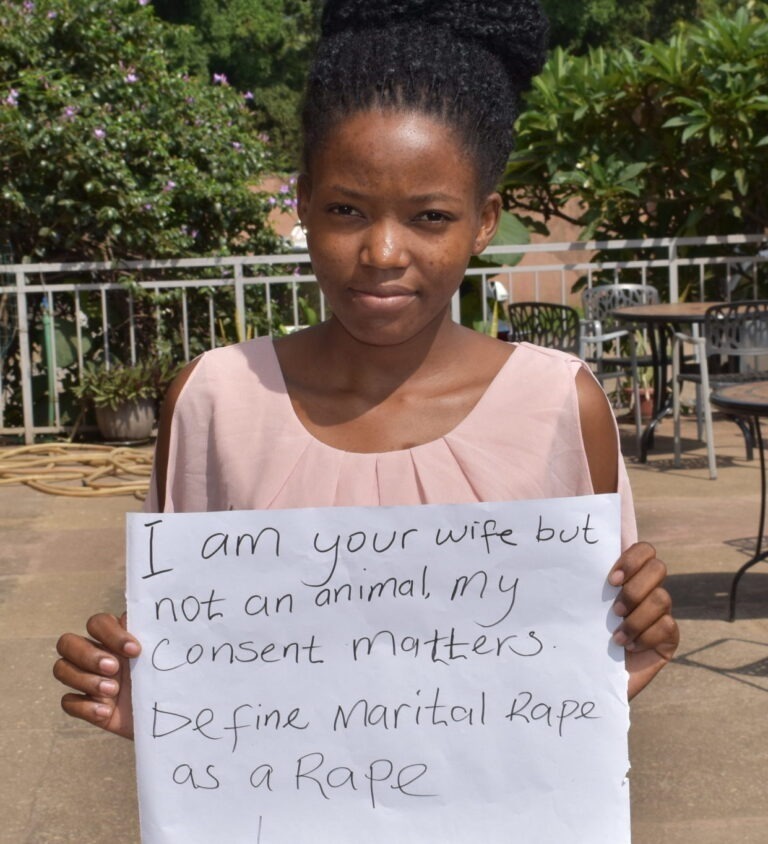 I am your wife but
not an animal, my
Consent matters.
Define Marital Rape
as a Rape